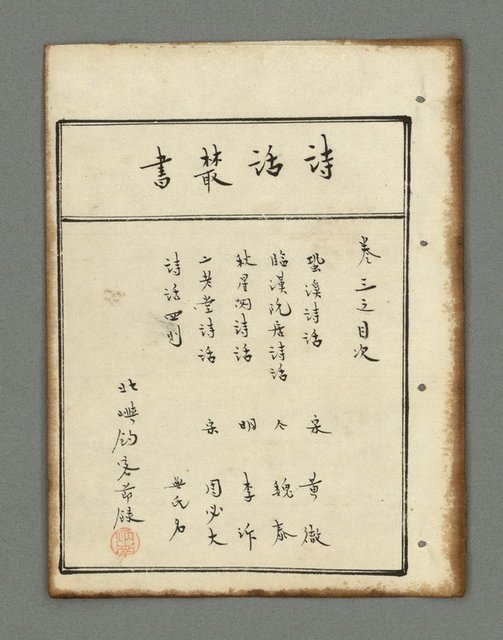 詩話叢書
卷三之目次
䂬溪詩話 宋 黃徹
臨漢隱居詩話 仝 魏泰
秋星閣詩話 明 李沂
二老堂詩話 宋 周必大
詩話四則 無氏名
北嶼釣客節錄